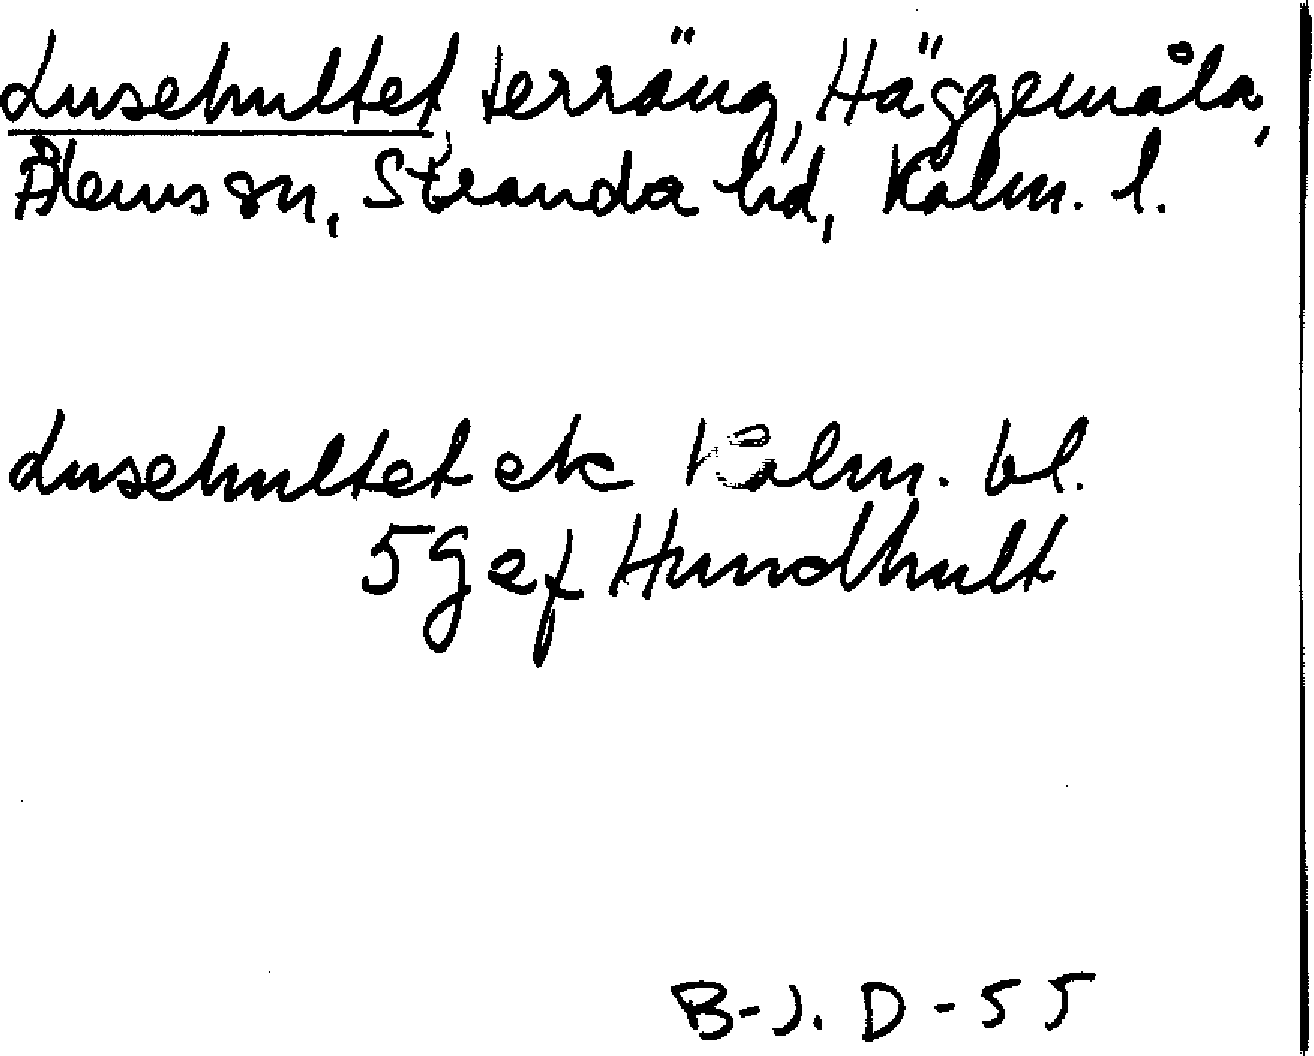 Lusehultet, terräng, Häggemåla,
Ålems sn, Stranda hd, Kalm. l.
Lusehultet ek Kalm. bl.
5 g ef Hundhult
B-J. D - 55